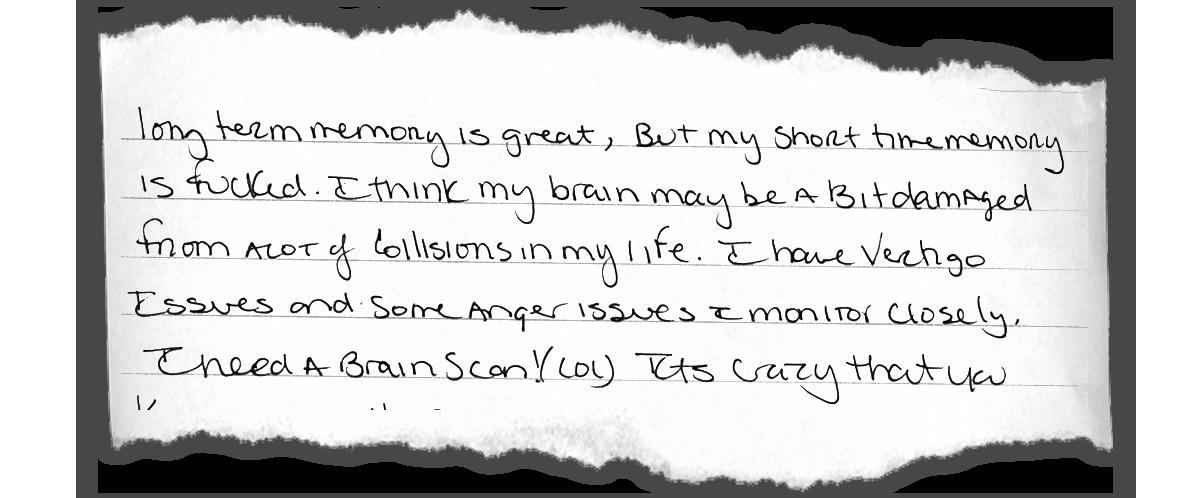 long term memory is great, But my short time memory
is fucked. I think my brain may be A Bit damaged
from A LOT of Collisions in my life. I have Vertigo
Issues and some Anger issues I monitor closely.
I need A Brain Scan! (LOL) Its crazy that you